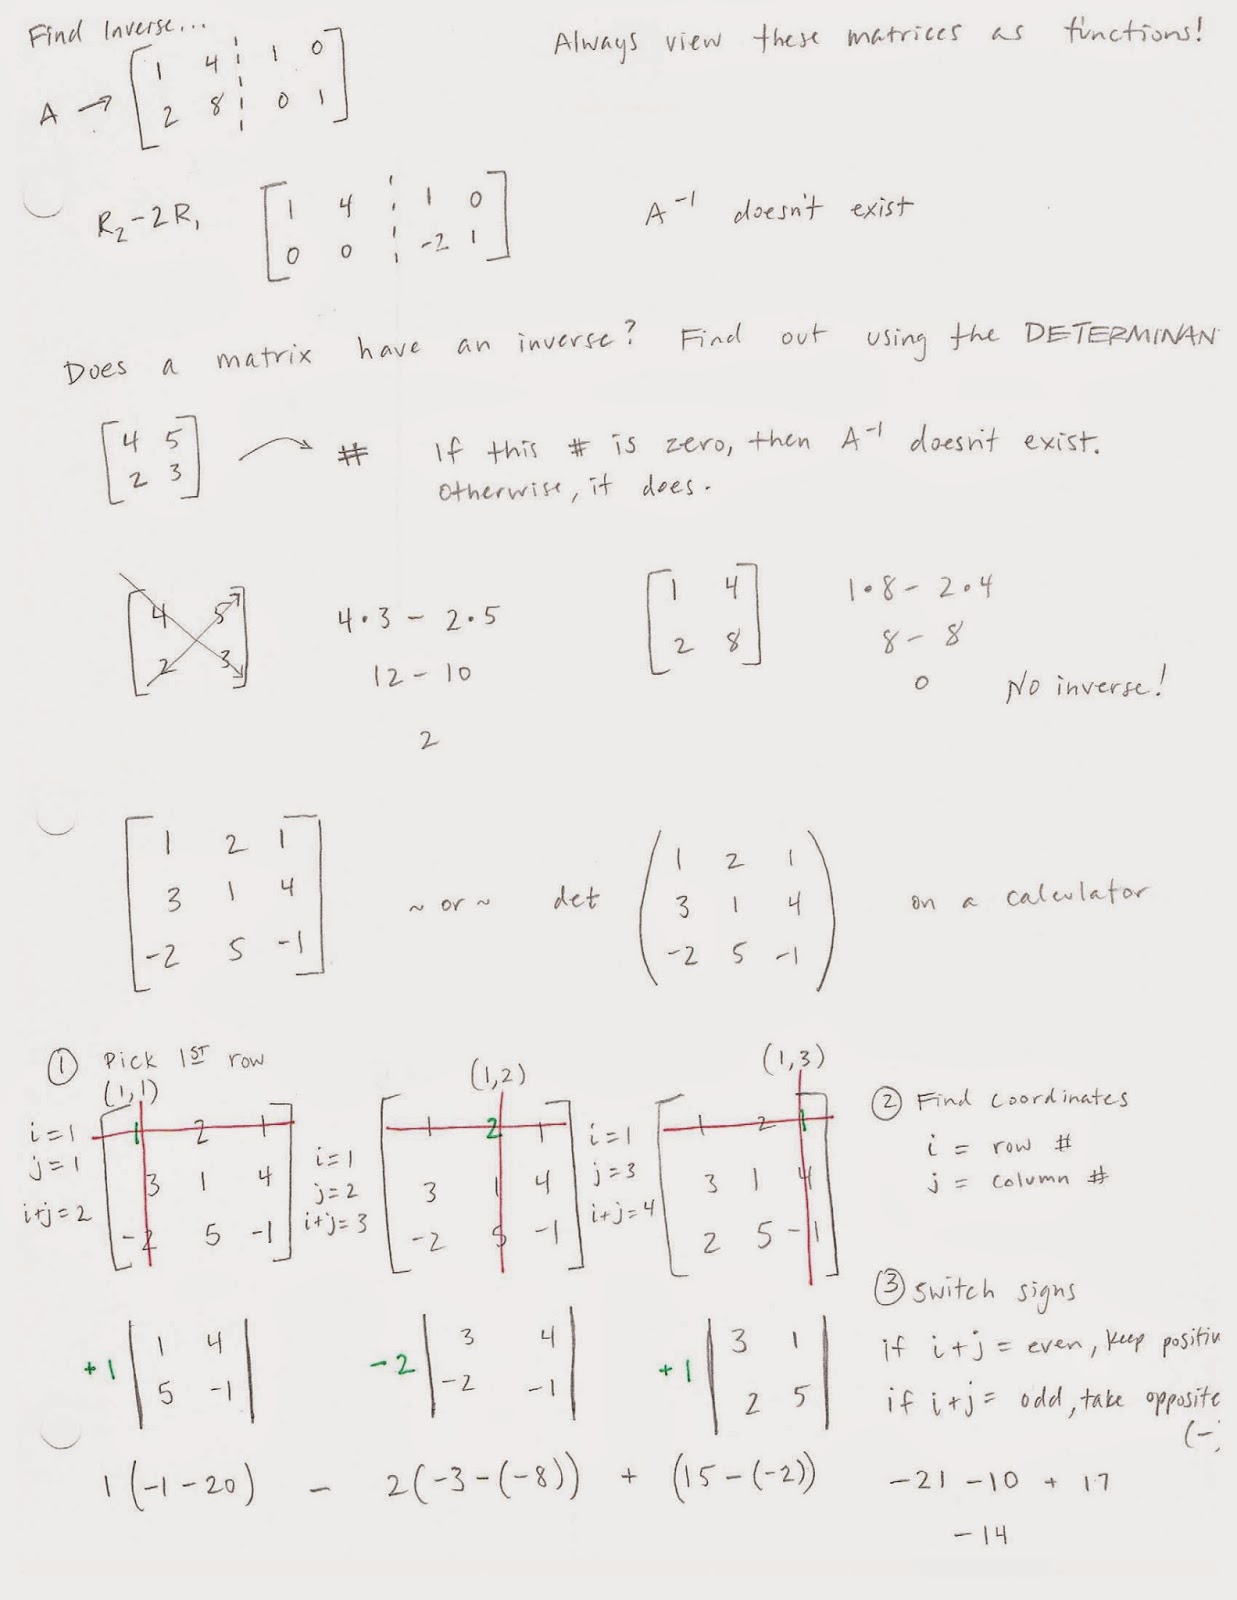 Find Inverse...
Always view these matrices as functions!
A → [ 1 4 ¦ 1 0
2 8 ¦ 0 1 ]
R₂-2R₁ [ 1 4 ¦ 1 0
0 0 ¦ -2 1 ]
A⁻¹ doesn't exist
Does a matrix have an inverse? Find out using the DETERMINAN
[ 4 5
2 3 ] → #
If this # is zero, then A⁻¹ doesn't exist.
Otherwise, it does.
[ 4 5
2 3 ]
4·3 - 2·5
12-10
2
[ 1 4
2 8 ]
1·8 - 2·4
8 - 8
0 No inverse!
[ 1 2 1
3 1 4
-2 5 -1 ]
~ or ~ det
( 1 2 1
3 1 4
-2 5 -1 )
on a calculator
① Pick 1ST row
(1,1)
i=1
j=1
i+j=2
[ 1 2 1
3 1 4
-2 5 -1 ]
(1,2)
i=1
j=2
i+j=3
[ 1 2 1
3 1 4
-2 5 -1 ]
(1,3)
i=1
j=3
i+j=4
[ 1 2 1
3 1 4
2 5 -1 ]
② Find coordinates
i = row #
j = column #
③ Switch signs
if i+j = even, keep positiv
if i+j = odd, take opposite
(-)
+1 | 1 4
5 -1 |
-2 | 3 4
-2 -1 |
+1 | 3 1
2 5 |
1(-1-20) - 2(-3-(-8)) + (15-(-2)) -21 -10 + 17
-14